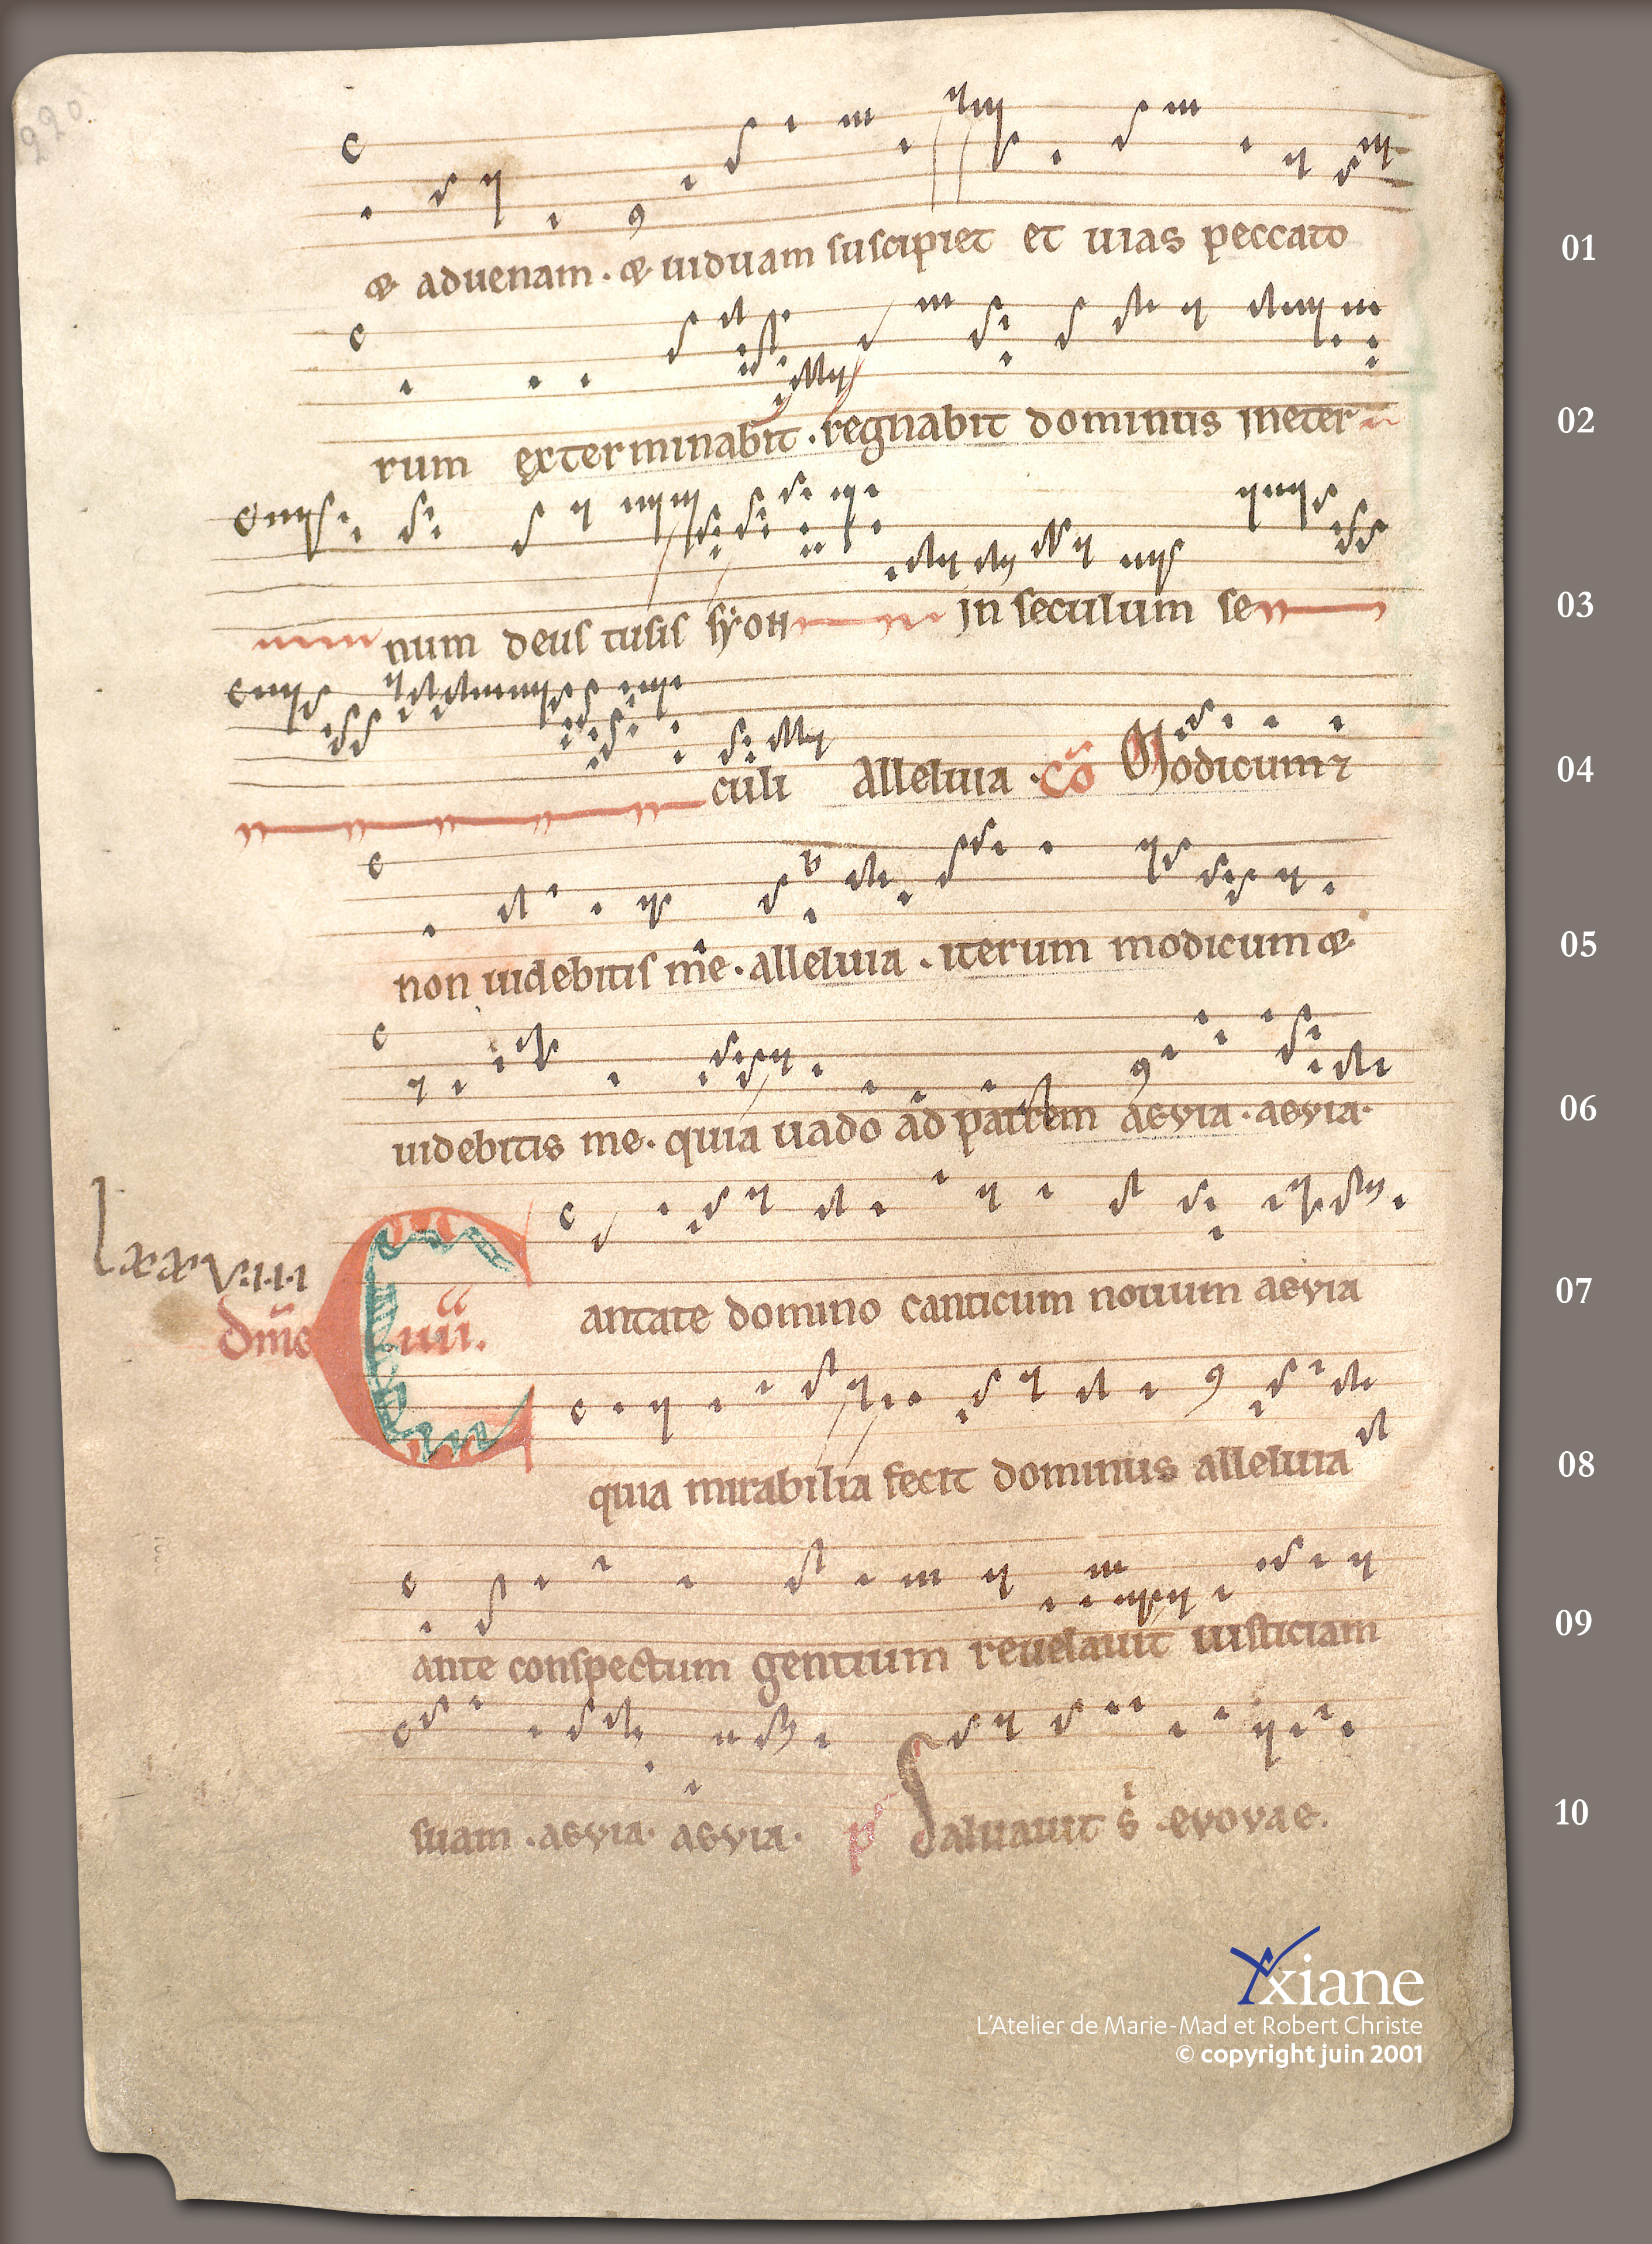 220.
& aduenam . & uiduam suscipiet et uias peccato
01
rum exterminabit . regnabit dominus ineter
02
num deus tuus syon in seculum se
03
culi Alleluia . Cō Modicum &
04
non uidebitis me . alleluia . iterum modicum &
05
uidebitis me . quia uado ad patrem aeuia . aeuia .
06
V.I.I.I
Cantate domino canticum nouum aeuia
07
dm̄c iiii.
quia mirabilia fecit dominus alleluia
08
ante conspectum gentium reuelauit iusticiam
09
suam . aeuia . aeuia . p Saluauit s . evovae .
10
Yxiane
L'Atelier de Marie-Mad et Robert Christe
© copyright juin 2001